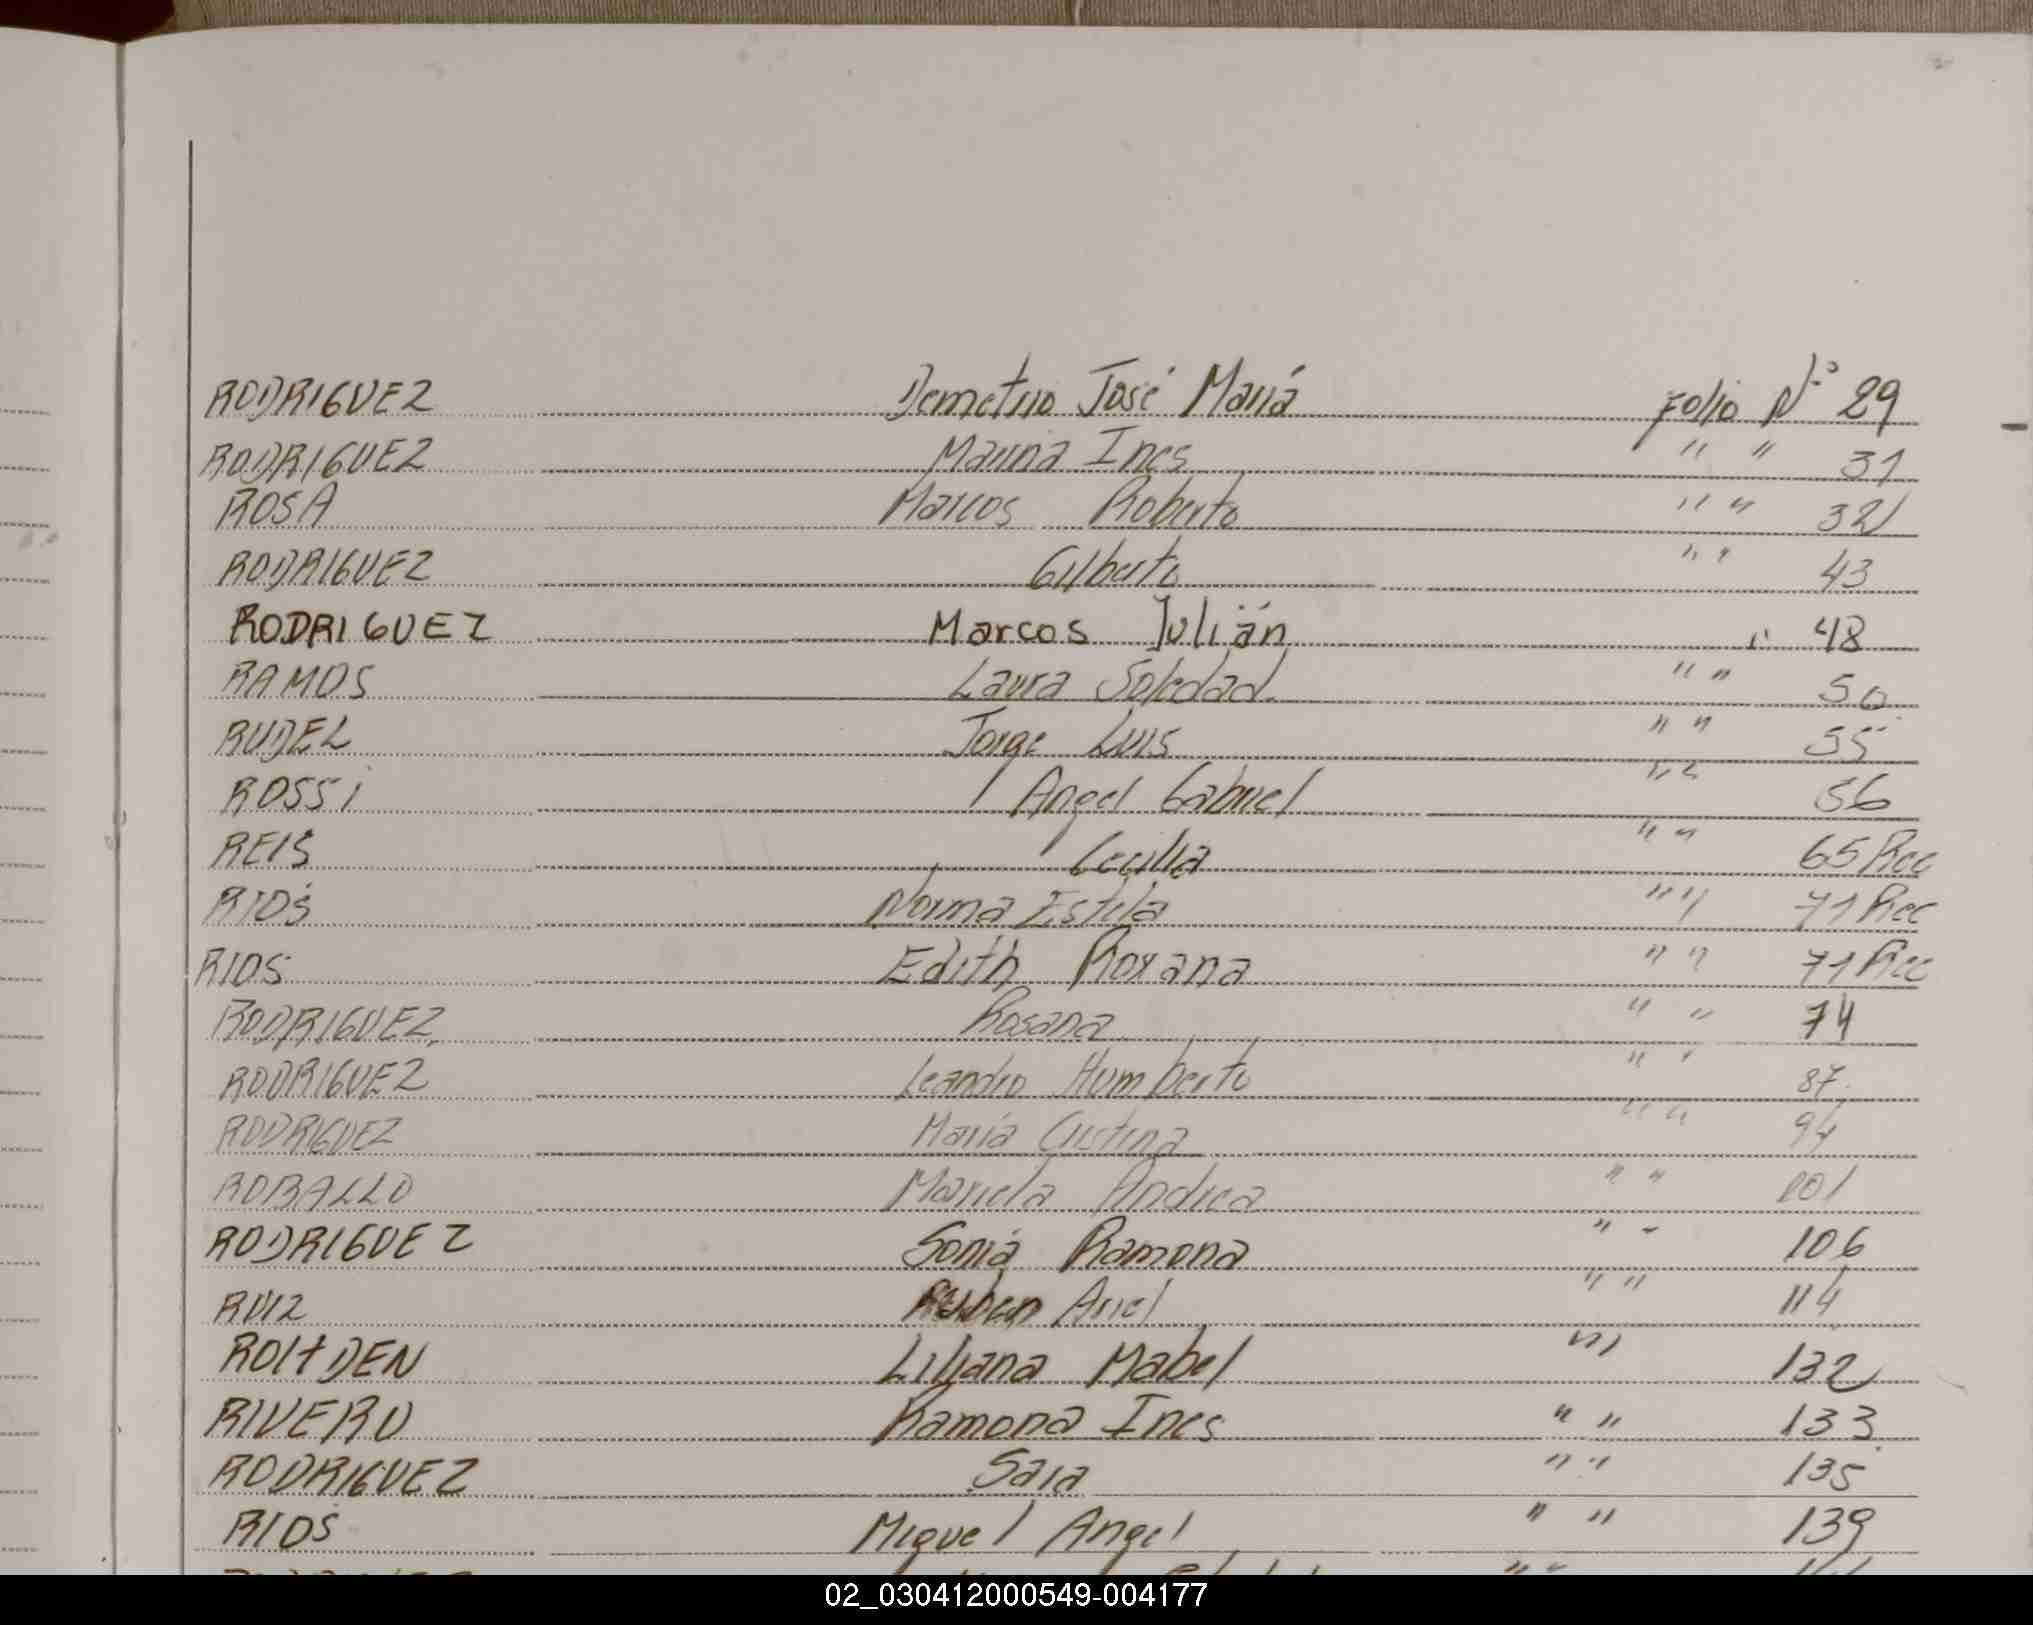 RODRIGUEZ Demetrio José María Folio Nº 29
RODRIGUEZ Marina Ines " " 31
ROSA Marcos Roberto " " 32
RODRIGUEZ Gilberto " " 43
RODRIGUEZ Marcos Julián " 48
RAMOS Laura Soledad " " 50
RUDEL Jorge Luis " " 55
ROSSi Angel Gabriel " " 56
REIS Cecilia " " 65 Rec
RIOS Norma Estela " " 71 Rec
RIOS Edith Roxana " " 71 Rec
RODRIGUEZ Rosana " " 74
RODRIGUEZ Leandro Humberto " " 87
RODRIGUEZ María Cristina " " 94
ROBALLO Mariela Andrea " " 101
RODRIGUEZ Sonia Ramona " " 106
RUIZ Ruben Ariel " " 114
Liliana Mabel " " 132
RIVERO Ramona Ines " " 133
RODRIGUEZ Sara " " 135
RIOS Miguel Angel " " 139
02_030412000549-004177